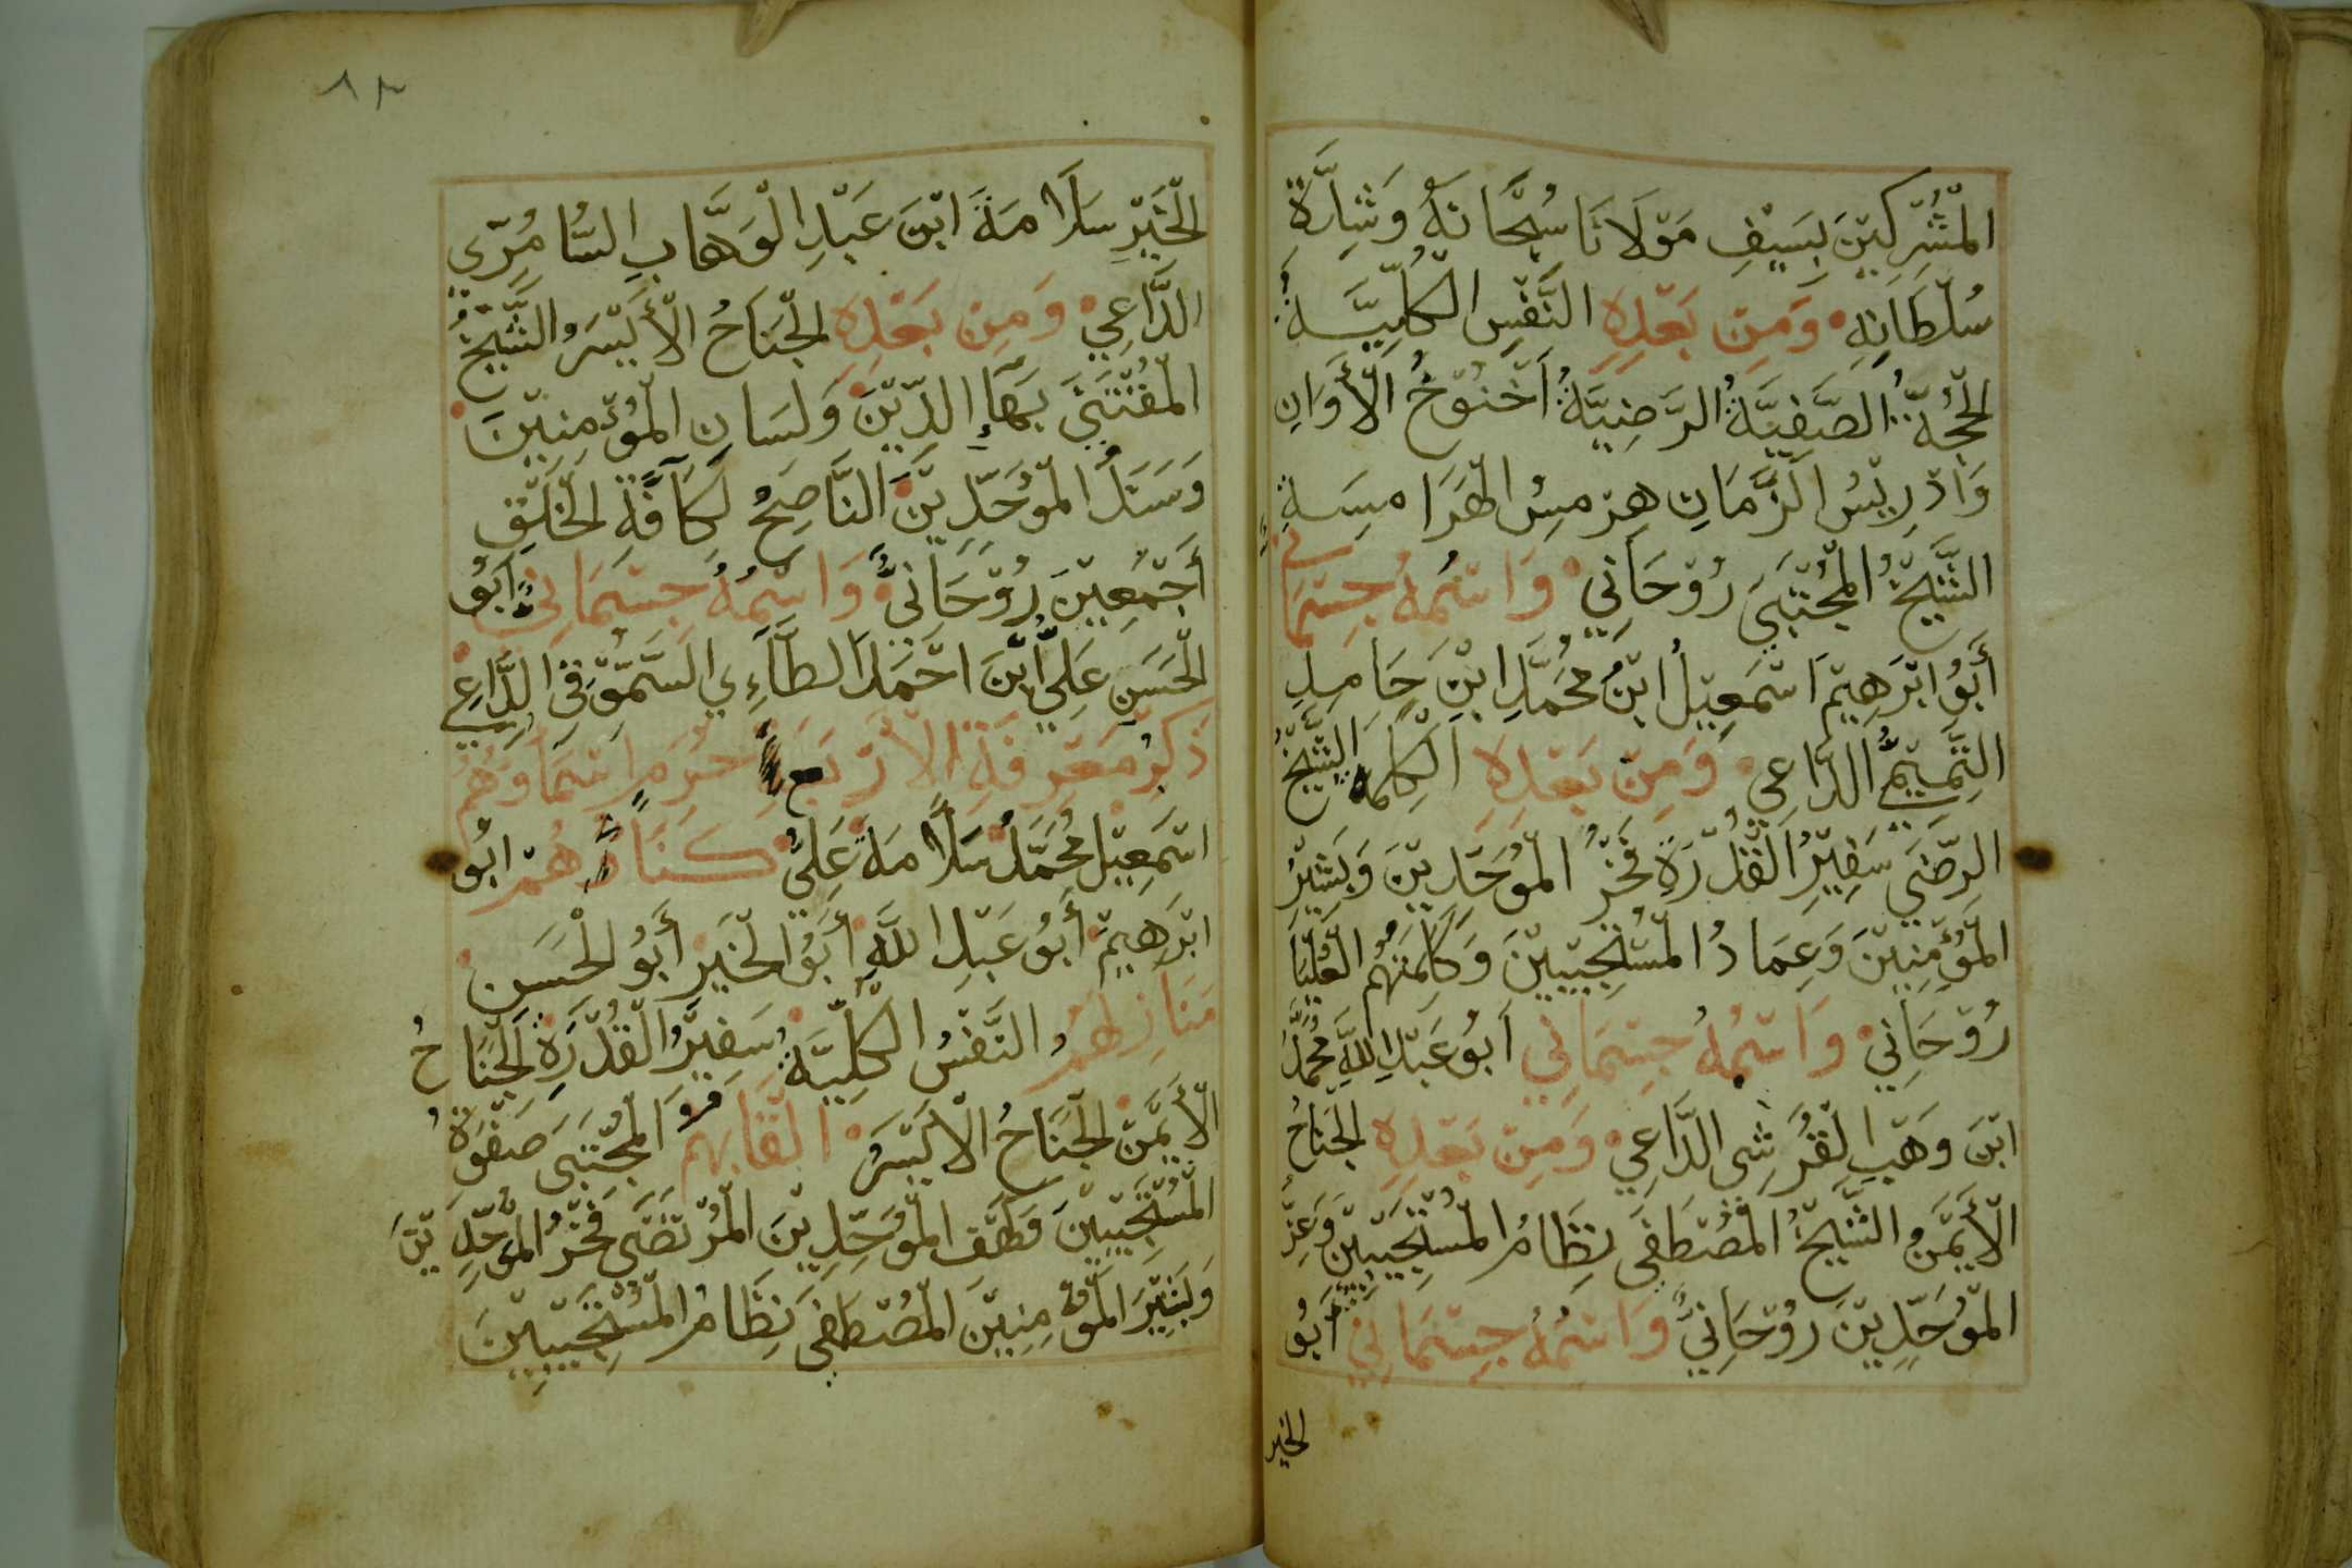 المشركين بسيف مولانا سبحانه وشدة
سلطانه ومن بعده النفس الكلية
الحجة الصفية الرضية أخنوخ الأوان
وادريس الزمان هرمس الهرامسة
الشيخ المجتبى روحاني واسمه جسماني
أبو ابرهيم اسمعيل ابن محمد ابن حامد
التميمي الداعي ومن بعده الكلمه الشيخ
الرضي سفير القدرة فخر الموحدين وبشير
المؤمنين وعماد المستجيبين وكلمتهم العليا
روحاني واسمه جسماني ابو عبد الله محمد
ابن وهب القرشي الداعي ومن بعده الجناح
الأيمن الشيخ المصطفى نظام المستجيبين وعز
الموحدين روحاني واسمه جسماني أبو
الخير
٨٣
الخير سلامة ابن عبد الوهاب السامري
الداعي ومن بعده الجناح الأيسر الشيخ
المقتنى بهاء الدين ولسان المؤمنين
وسند الموحدين الناصح لكافة الخلق
أجمعين روحاني واسمه جسماني ابو
الحسن علي ابن احمد الطاءي السموقي الداعي
ذكر معرفة الأربع حرم اسماوهم
اسمعيل محمد سلامة علي كناهم ابو
ابرهيم أبو عبد الله أبو الخير أبو الحسن
منازلهم النفس الكلية سفير القدرة الجناح
الأيمن الجناح الأيسر القابهم المجتبى صفوة
المستجيبين وكهف الموحدين المرتضى فخر الموحدين
وبشير المؤمنين المصطفى نظام المستجيبين